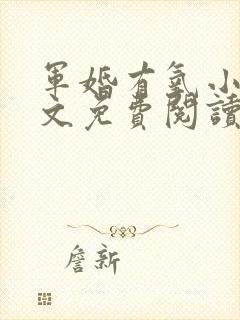 軍婚有氧小
文免費閱讀
詹新